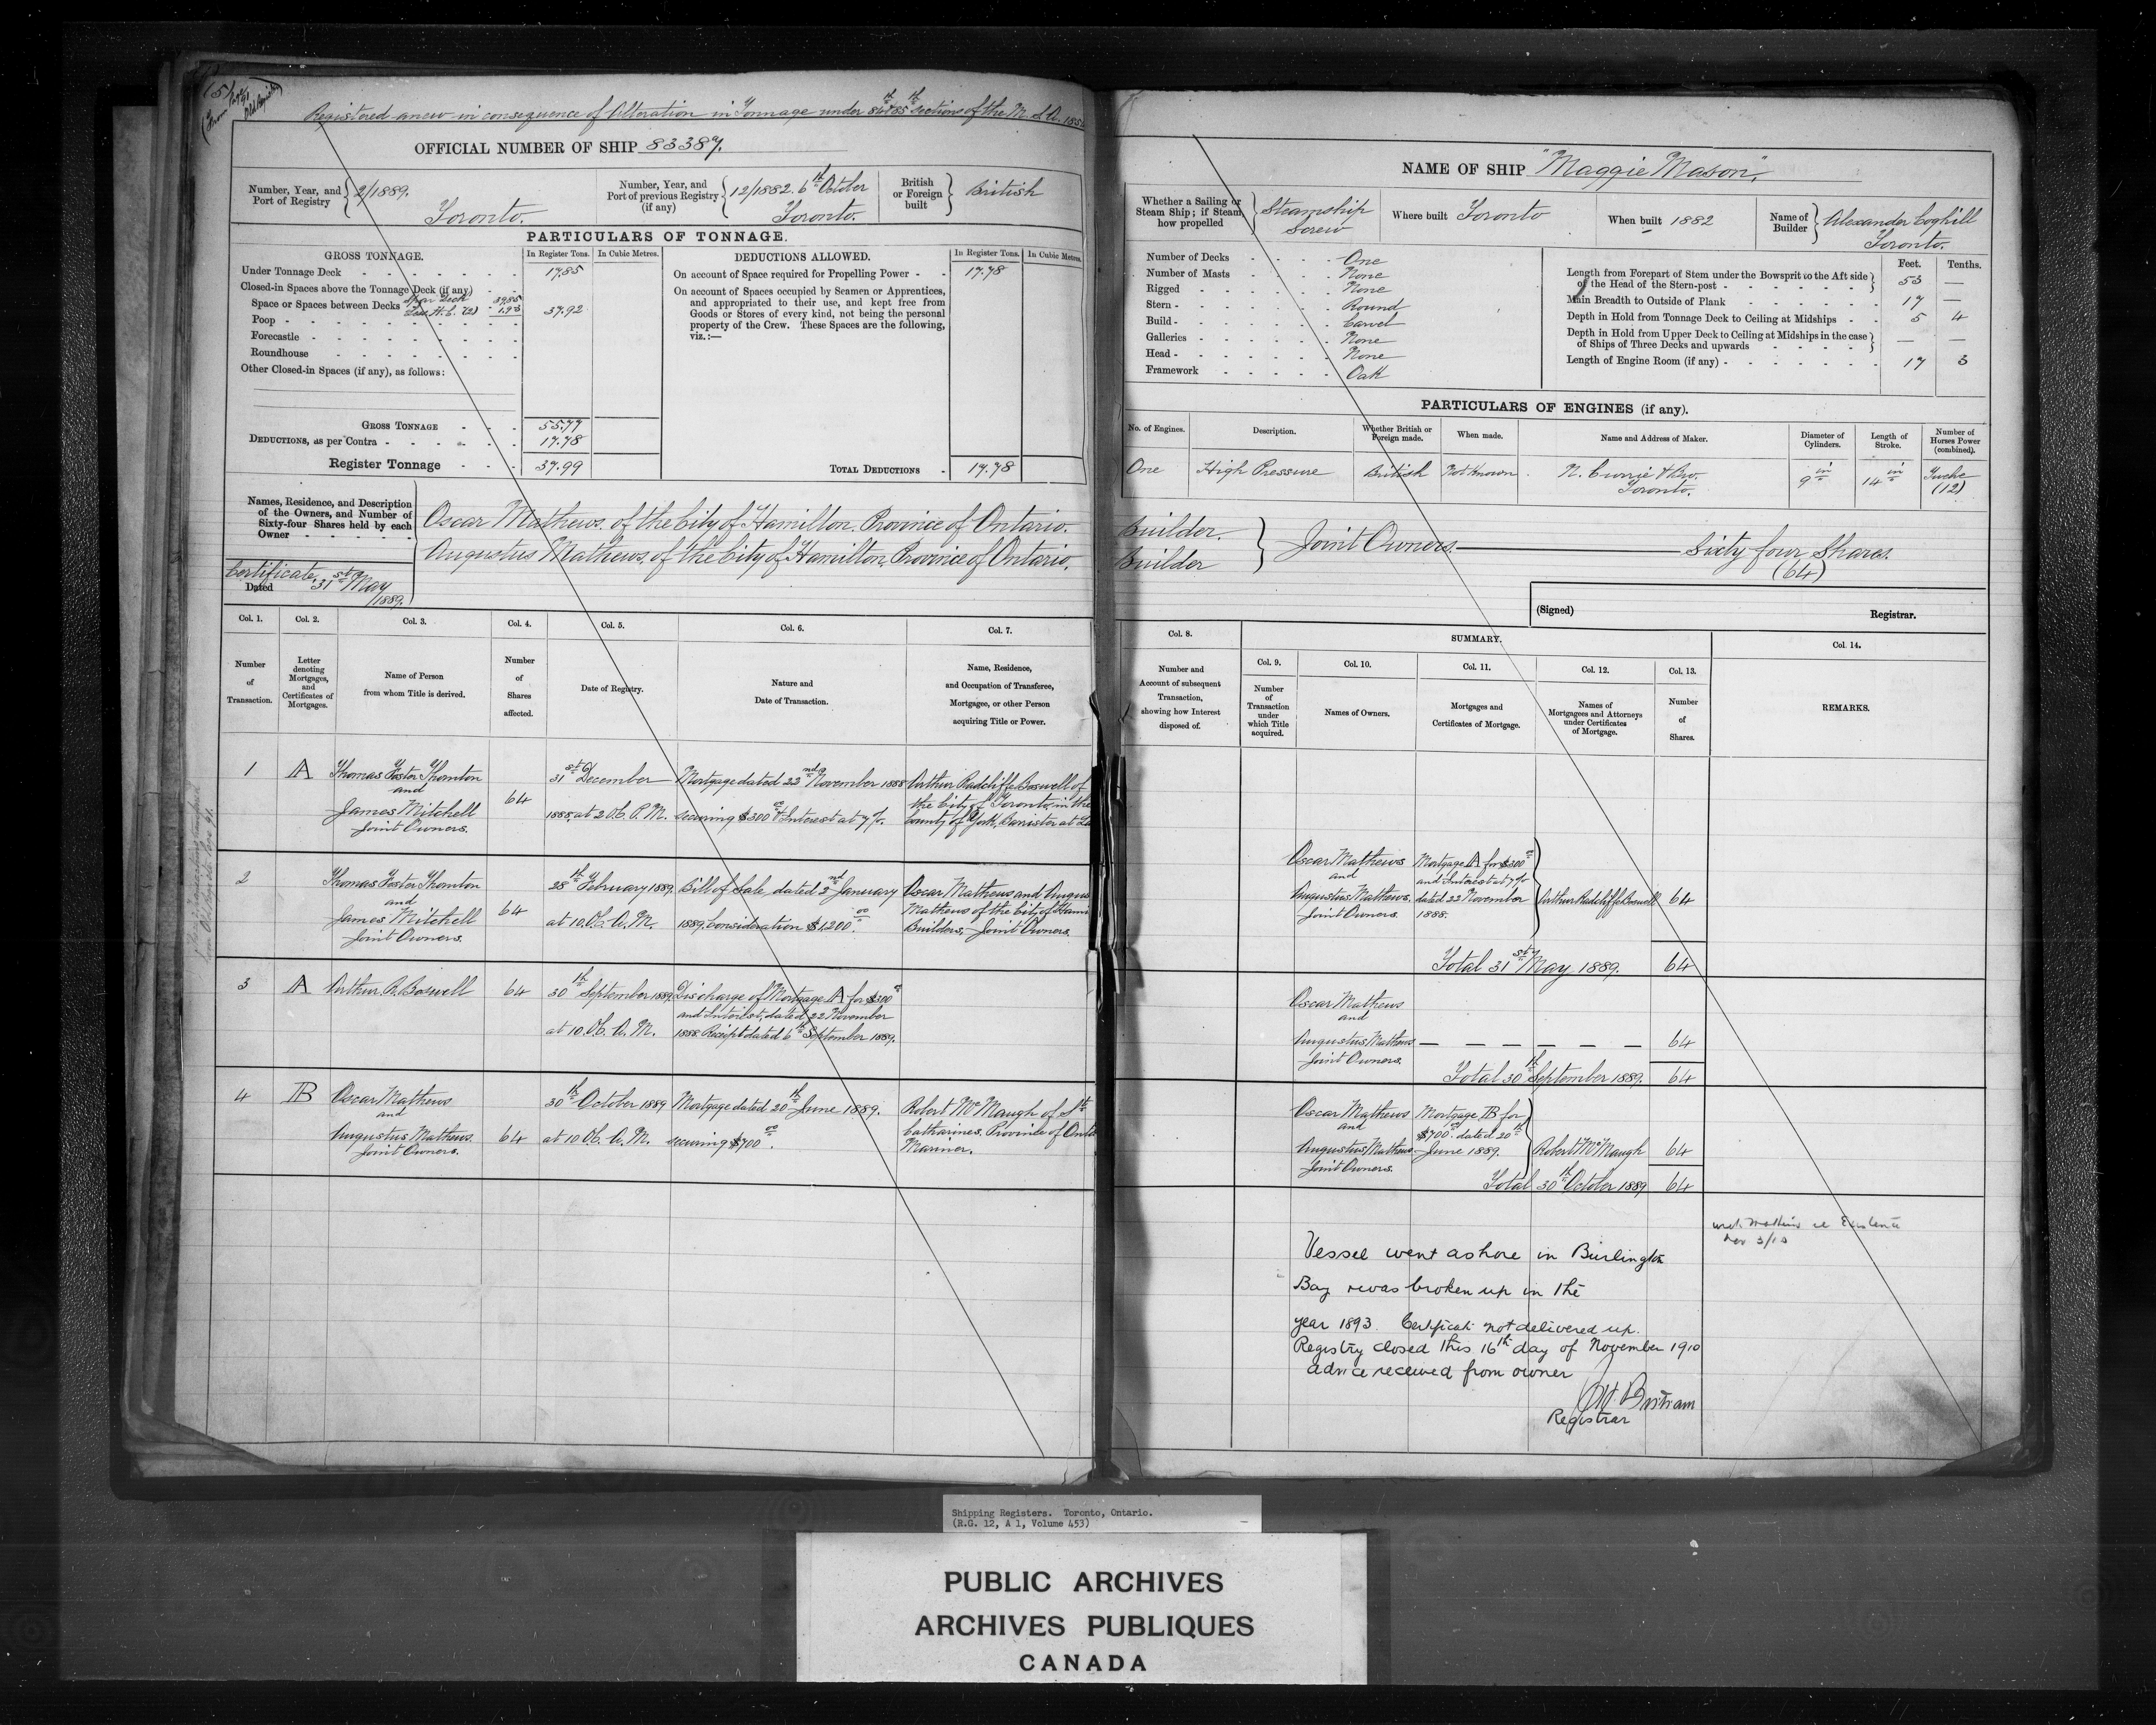 Registered anew in consequence of Alteration in Tonnage under 84th & 85th sections of the M. S. A. 1854
OFFICIAL NUMBER OF SHIP 83387.
Number, Year, and Port of Registry 2/1889. Toronto.
Number, Year, and Port of previous Registry (if any) 12/1882. 6th October Toronto.
British or Foreign built British
PARTICULARS OF TONNAGE.
GROSS TONNAGE. In Register Tons. In Cubic Metres.
Under Tonnage Deck 17.85
Closed-in Spaces above the Tonnage Deck (if any)
Space or Spaces between Decks 37.92
Poop
Forecastle
Roundhouse
Other Closed-in Spaces (if any), as follows:
GROSS TONNAGE 55.77
DEDUCTIONS, as per Contra 17.78
Register Tonnage 37.99
DEDUCTIONS ALLOWED. In Register Tons. In Cubic Metres.
On account of Space required for Propelling Power 17.78
On account of Spaces occupied by Seamen or Apprentices,
and appropriated to their use, and kept free from
Goods or Stores of every kind, not being the personal
property of the Crew. These Spaces are the following,
viz.:—
TOTAL DEDUCTIONS 17.78
Names, Residence, and Description
of the Owners, and Number of
Sixty-four Shares held by each
Owner
Certificate
Dated 31st May /1889.
Oscar Mathews, of the City of Hamilton, Province of Ontario.
Augustus Mathews, of the City of Hamilton, Province of Ontario.
Col. 1. Col. 2. Col. 3. Col. 4. Col. 5. Col. 6. Col. 7.
Number of Transaction.
Letter denoting Mortgages, and Certificates of Mortgages.
Name of Person from whom Title is derived.
Number of Shares affected.
Date of Registry.
Nature and Date of Transaction.
Name, Residence, and Occupation of Transferee, Mortgagee, or other Person acquiring Title or Power.
1 A Thomas Foster Thornton
and
James Mitchell
Joint Owners.
64
31st December
1888, at 2 O.C. P.M.
Mortgage dated 22nd November 1888
securing $300.00 & Interest at 7 %.
Arthur Radcliffe Boswell of
the City of Toronto, in the
County of York, Barrister at La
2 Thomas Foster Thornton
and
James Mitchell
Joint Owners.
64
28th February 1889.
at 10.O.C. A.M.
Bill of Sale, dated 2nd January
1889. Consideration $1,200.00
Oscar Mathews and Augus
Mathews of the City of Hami
Builders, Joint Owners.
3 A Arthur R. Boswell
64
30th September 1889
at 10.O.C. A.M.
Discharge of Mortgage A for $300.00
and Interest, dated 22 November
1888. Receipt dated 6th September 1889.
4 B Oscar Mathews
and
Augustus Mathews.
Joint Owners.
64
30th October 1889
at 10 O.C. A.M.
Mortgage dated 20th June 1889.
securing $700.00.
Robert McMaugh of St.
Catharines, Province of Onta
Mariner.
NAME OF SHIP "Maggie Mason".
Whether a Sailing or Steam Ship; if Steam how propelled Steamship Screw
Where built Toronto
When built 1882
Name of Builder Alexander Coghill Toronto.
Number of Decks One
Number of Masts None
Rigged None
Stern Round
Build Carvel
Galleries None
Head None
Framework Oak
Feet. Tenths.
Length from Forepart of Stem under the Bowsprit to the Aft side
of the Head of the Stern-post 53 —
Main Breadth to Outside of Plank 17 —
Depth in Hold from Tonnage Deck to Ceiling at Midships 5 4
Depth in Hold from Upper Deck to Ceiling at Midships in the case
of Ships of Three Decks and upwards — —
Length of Engine Room (if any) 17 3
PARTICULARS OF ENGINES (if any).
No. of Engines. Description. Whether British or Foreign made. When made. Name and Address of Maker. Diameter of Cylinders. Length of Stroke. Number of Horses Power (combined).
One High Pressure British Not Known N. Currie & Bro. Toronto. 9 in 14 in Twelve (12)
Builder.
Builder
Joint Owners. Sixty four Shares.
(64)
(Signed) Registrar.
Col. 8. SUMMARY. Col. 14.
Number and Account of subsequent Transaction, showing how Interest disposed of.
Col. 9. Col. 10. Col. 11. Col. 12. Col. 13.
Number of Transaction under which Title acquired.
Names of Owners.
Mortgages and Certificates of Mortgage.
Names of Mortgagees and Attorneys under Certificates of Mortgage.
Number of Shares.
REMARKS.
Oscar Mathews
and
Augustus Mathews.
Joint Owners.
Mortgage A for $300.00
and Interest at 7 %
dated 22 November
1888.
Arthur Radcliffe Boswell 64
Total 31st May 1889. 64
Oscar Mathews
and
Augustus Mathews — — — — — — 64
Joint Owners.
Total 30th September 1889. 64
Oscar Mathews
and
Augustus Mathews
Joint Owners.
Mortgage B for
$700.00 dated 20th
June 1889.
Robert McMaugh 64
Total 30th October 1889 64
Vessel went ashore in Burlington
Bay & was broken up in the
year 1893. Certificate not delivered up.
Registry closed this 16th day of November 1910
advice received from owner
Registrar
Shipping Registers. Toronto, Ontario.
(R.G. 12, A 1, Volume 453)
PUBLIC ARCHIVES
ARCHIVES PUBLIQUES
CANADA